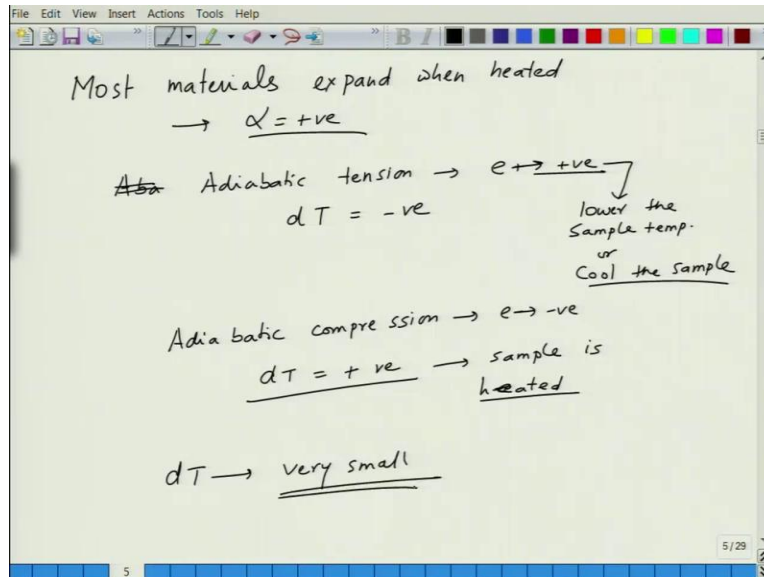 File Edit View Insert Actions Tools Help
" " B I
Most materials expand when heated
→ α = +ve
Aba Adiabatic tension → e → +ve
dT = -ve
lower the
Sample temp.
or
Cool the sample
Adiabatic compression → e → -ve
dT = + ve → sample is
heated
dT → very small
5/29
5